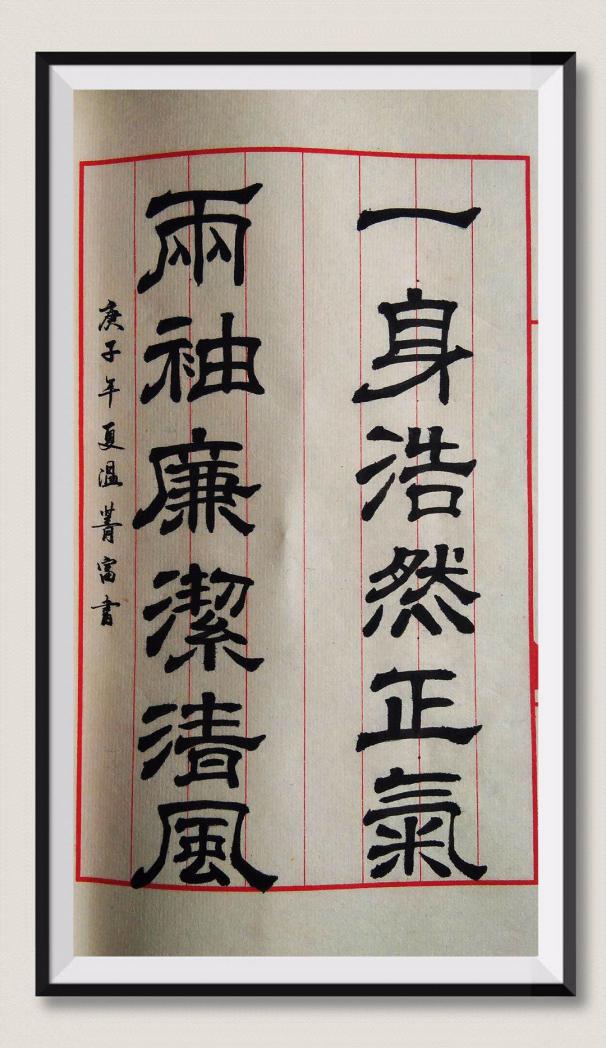 一身浩然正氣
兩袖廉潔清風
庚子年夏溫菁富書